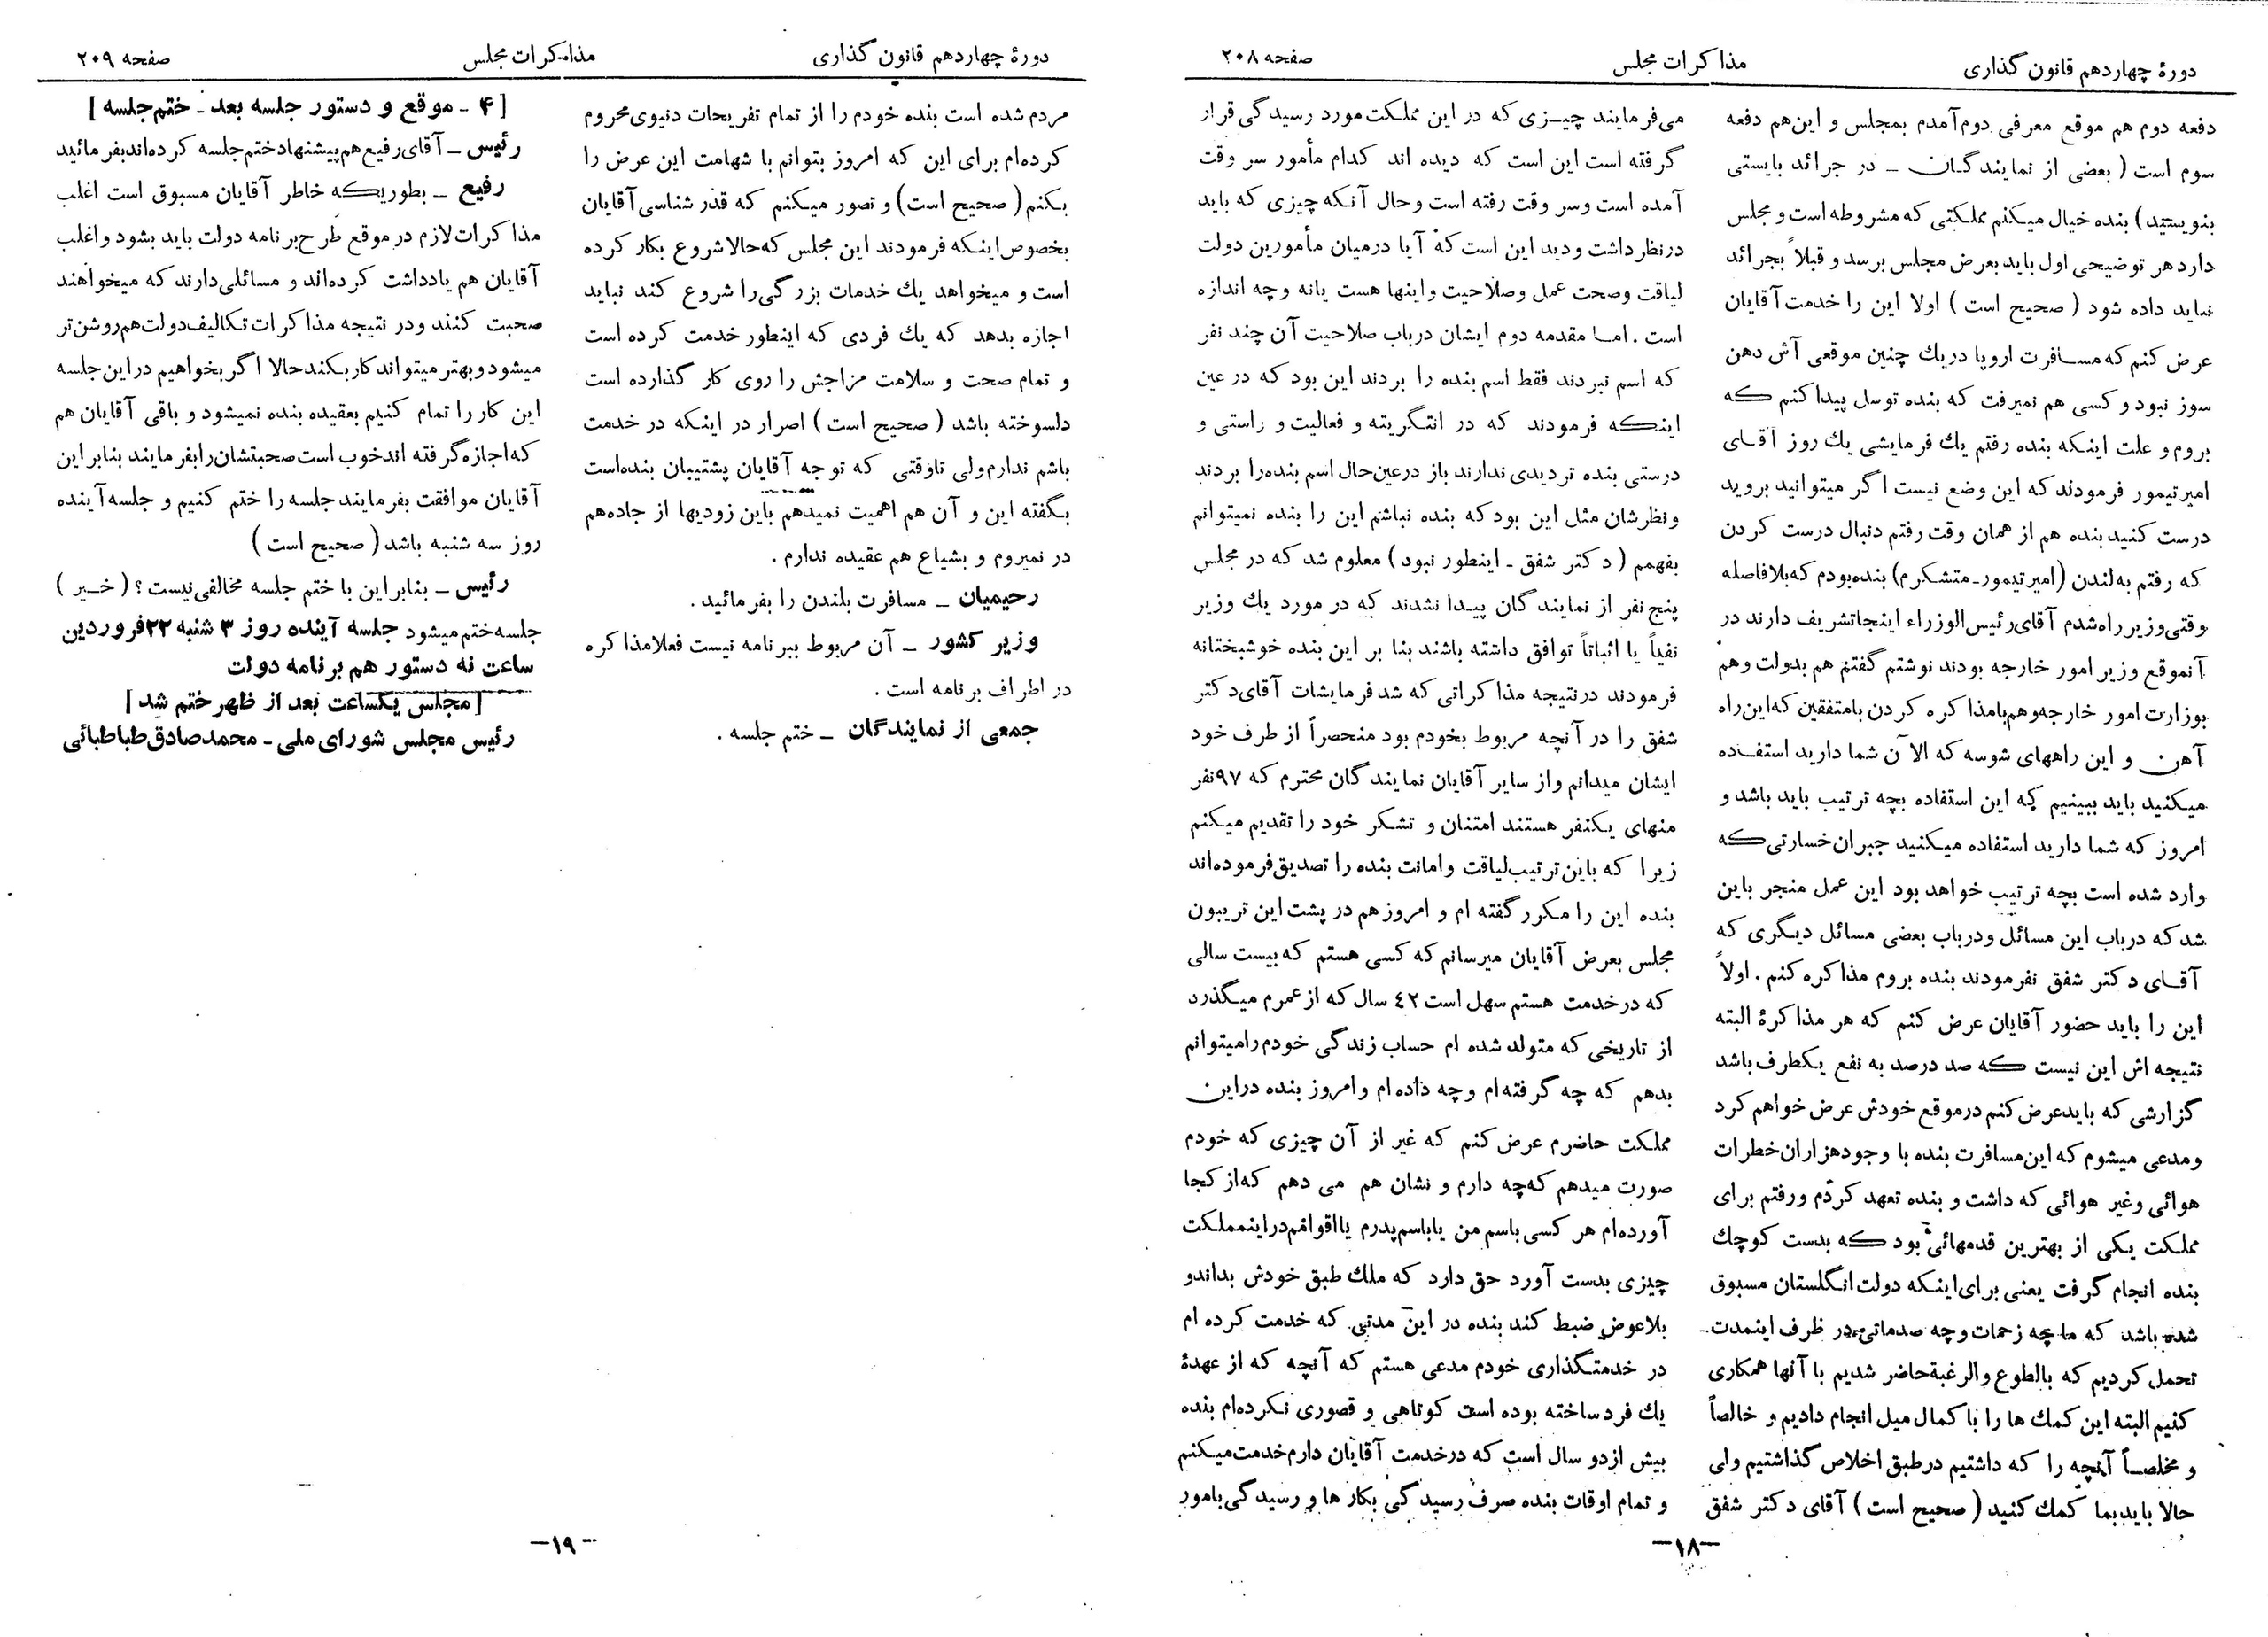 دورهٔ چهاردهم قانون گذاری
مذاکرات مجلس
صفحه ۲۰۸
دفعه دوم هم موقع معرفی دوم آمدم بمجلس و این هم دفعه
سوم است ( بعضی از نمایندگان ـ در جرائد بایستی
بنویستید) بنده خیال میکنم مملکتی که مشروطه است و مجلس
دارد هر توضیحی اول باید بعرض مجلس برسد و قبلاً بجرائد
نباید داده شود ( صحیح است ) اولا این را خدمت آقایان
عرض کنم که مسافرت اروپا در یك چنین موقعی آش دهن
سوز نبود و کسی هم نمیرفت که بنده توسل پیدا کنم که
بروم و علت اینکه بنده رفتم یك فرمایشی یك روز آقای
امیرتیمور فرمودند که این وضع نیست اگر میتوانید بروید
درست کنید بنده هم از همان وقت رفتم دنبال درست کردن
که رفتم به لندن (امیرتیمور ـ متشکرم) بنده بودم که بلافاصله
وقتی وزیر راه شدم آقای رئیس الوزراء اینجا تشریف دارند در
آنموقع وزیر امور خارجه بودند نوشتم گفتم هم بدولت وهم
بوزارت امور خارجه وهم با مذاکره کردن بامتفقین که این راه
آهن و این راههای شوسه که الآن شما دارید استفاده
میکنید باید ببینیم که این استفاده بچه ترتیب باید باشد و
امروز که شما دارید استفاده میکنید جبران خسارتی که
وارد شده است بچه ترتیب خواهد بود این عمل منجر باین
شد که درباب این مسائل ودرباب بعضی مسائل دیگری که
آقای دکتر شفق نفرمودند بنده بروم مذاکره کنم . اولاً
این را باید حضور آقایان عرض کنم که هر مذاکرهٔ البته
نتیجه اش این نیست که صد درصد به نفع یکطرف باشد
گزارشی که باید عرض کنم درموقع خودش عرض خواهم کرد
ومدعی میشوم که این مسافرت بنده با وجود هزاران خطرات
هوائی وغیر هوائی که داشت و بنده تعهد کردم ورفتم برای
مملکت یکی از بهترین قدمهائی بود که بدست کوچك
بنده انجام گرفت یعنی برای اینکه دولت انگلستان مسبوق
شده باشد که ما چه زحمات وچه صدماتی در ظرف اینمدت
تحمل کردیم که بالطوع والرغبة حاضر شدیم با آنها همکاری
کنیم البته این کمك ها را با کمال میل انجام دادیم و خالصاً
و مخلصاً آنچه را که داشتیم درطبق اخلاص گذاشتیم ولی
حالا باید بما کمك کنید ( صحیح است ) آقای دکتر شفق
می‌فرمایند چیزی که در این مملکت مورد رسیدگی قرار
گرفته است این است که دیده اند کدام مأمور سر وقت
آمده است وسر وقت رفته است وحال آنکه چیزی که باید
درنظر داشت ودید این است که آیا درمیان مأمورین دولت
لیاقت وصحت عمل وصلاحیت واینها هست یا نه وچه اندازه
است . اما مقدمه دوم ایشان درباب صلاحیت آن چند نفر
که اسم نبردند فقط اسم بنده را بردند این بود که در عین
اینکه فرمودند که در انتگریته و فعالیت و راستی و
درستی بنده تردیدی ندارند باز درعین حال اسم بنده را بردند
ونظرشان مثل این بود که بنده نباشم این را بنده نمیتوانم
بفهمم ( دکتر شفق ـ اینطور نبود ) معلوم شد که در مجلس
پنج نفر از نمایندگان پیدا نشدند که در مورد یك وزیر
نفیاً یا اثباتاً توافق داشته باشند بنا بر این بنده خوشبختانه
فرمودند درنتیجه مذاکراتی که شد فرمایشات آقای دکتر
شفق را در آنچه مربوط بخودم بود منحصراً از طرف خود
ایشان میدانم واز سایر آقایان نمایندگان محترم که ۹۷ نفر
منهای یکنفر هستند امتنان و تشکر خود را تقدیم میکنم
زیرا که باین ترتیب لیاقت وامانت بنده را تصدیق فرموده‌اند
بنده این را مکرر گفته ام و امروز هم در پشت این تریبون
مجلس بعرض آقایان میرسانم که کسی هستم که بیست سالی
که درخدمت هستم سهل است ۴۲ سال که از عمرم میگذرد
از تاریخی که متولد شده ام حساب زندگی خودم رامیتوانم
بدهم که چه گرفته‌ام وچه داده‌ام وامروز بنده دراین
مملکت حاضرم عرض کنم که غیر از آن چیزی که خودم
صورت میدهم که‌چه دارم و نشان هم می دهم که‌از کجا
آورده‌ام هر کسی باسم من یاباسم پدرم یااقوامم دراینمملکت
چیزی بدست آورد حق دارد که ملك طبق خودش بداندو
بلاعوض ضبط کند بنده در این مدتی که خدمت کرده ام
در خدمتگذاری خودم مدعی هستم که آنچه که از عهدهٔ
یك فرد ساخته بوده است کوتاهی و قصوری نکرده‌ام بنده
بیش ازدو سال است که درخدمت آقایان دارم خدمت میکنم
و تمام اوقات بنده صرف رسیدگی بکار ها و رسیدگی بامور
ـ۱۸ـ
دورهٔ چهاردهم قانون گذاری
مذاکرات مجلس
صفحه ۲۰۹
مردم شده است بنده خودم را از تمام تفریحات دنیوی محروم
کرده‌ام برای این که امروز بتوانم با شهامت این عرض را
بکنم ( صحیح است ) و تصور میکنم که قدر شناسی آقایان
بخصوص اینکه فرمودند این مجلس که حالا شروع بکار کرده
است و میخواهد یك خدمات بزرگی را شروع کند نباید
اجازه بدهد که یك فردی که اینطور خدمت کرده است
و تمام صحت و سلامت مزاجش را روی کار گذارده است
دلسوخته باشد ( صحیح است ) اصرار در اینکه در خدمت
باشم ندارم ولی تاوقتی که توجه آقایان پشتیبان بنده‌است
بگفته این و آن هم اهمیت نمیدهم باین زودیها از جاده هم
در نمیروم و بشیاع هم عقیده ندارم .
رحیمیان ـ مسافرت بلندن را بفرمائید .
وزیر کشور ـ آن مربوط ببرنامه نیست فعلا مذاکره
در اطراف برنامه است .
جمعی از نمایندگان ـ ختم جلسه .
[ ۴ ـ موقع و دستور جلسه بعد ـ ختم جلسه ]
رئیس ـ آقای رفیع هم پیشنهاد ختم جلسه کرده‌اند بفرمائید
رفیع ـ بطوریکه خاطر آقایان مسبوق است اغلب
مذاکرات لازم در موقع طرح برنامه دولت باید بشود و اغلب
آقایان هم یادداشت کرده‌اند و مسائلی دارند که میخواهند
صحبت کنند ودر نتیجه مذاکرات تکالیف دولت هم روشن تر
میشود و بهتر میتواند کار بکند حالا اگر بخواهیم در این جلسه
این کار را تمام کنیم بعقیده بنده نمیشود و باقی آقایان هم
که اجازه گرفته اند خوب است صحبتشان را بفرمایند بنابر این
آقایان موافقت بفرمایند جلسه را ختم کنیم و جلسه آینده
روز سه شنبه باشد ( صحیح است )
رئیس ـ بنابر این با ختم جلسه مخالفی نیست ؟ ( خیر )
جلسه ختم میشود جلسه آینده روز ۳ شنبه ۲۲ فروردین
ساعت نه دستور هم برنامه دولت
[ مجلس یکساعت بعد از ظهر ختم شد ]
رئیس مجلس شورای ملی ـ محمد صادق طباطبائی
ـ۱۹ـ